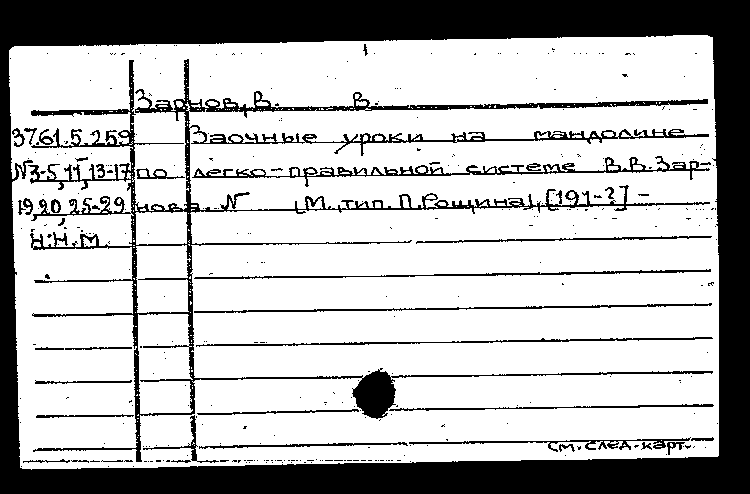 Зарнов, В. В.
3761.5.259 Заочные уроки на мандолине
№3-5, 11, 13-17, по легко-правильной системе В.В.Зар-
19,20, 25-29 нова. № [М., тип. П.Рощина], [191-?] -
Н.Н.М.
См. след. карт.